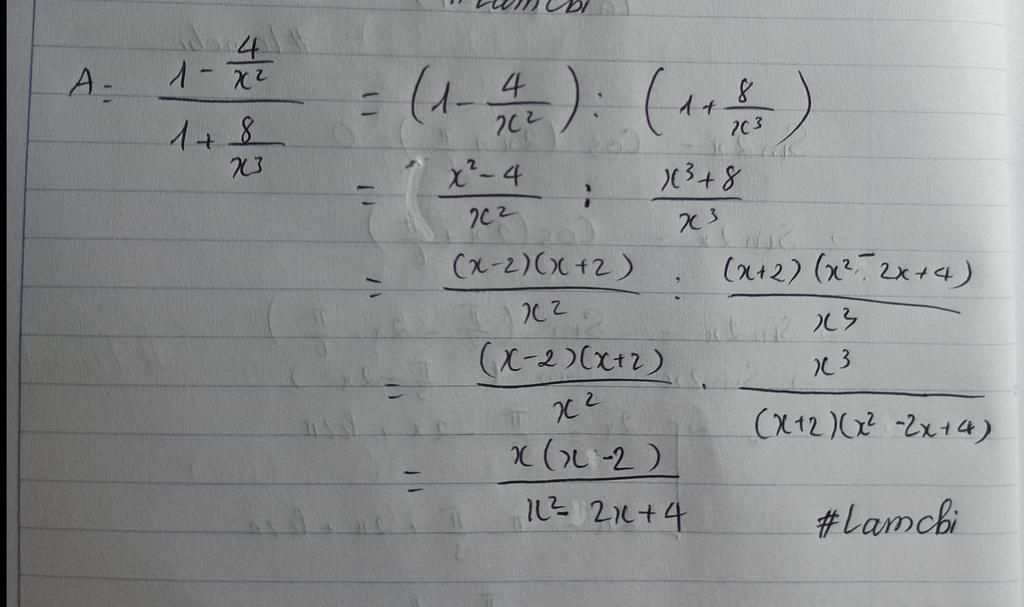 #Lamcbi
A = \frac{1 - \frac{4}{x^2}}{1 + \frac{8}{x^3}} = (1 - \frac{4}{x^2}) : (1 + \frac{8}{x^3})
= \frac{x^2 - 4}{x^2} : \frac{x^3 + 8}{x^3}
= \frac{(x-2)(x+2)}{x^2} : \frac{(x+2)(x^2 - 2x + 4)}{x^3}
= \frac{(x-2)(x+2)}{x^2} . \frac{x^3}{(x+2)(x^2 - 2x + 4)}
= \frac{x(x-2)}{x^2 - 2x + 4}
#Lamcbi